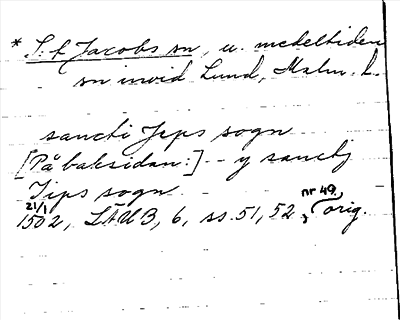 * S:t Jacobs sn, u. medeltiden
sn invid Lund, Malm. l.
sancti Jeps sogn
[På baksidan:] -- y sanctj
Jips sogn
21/1 1502, LÄUB, 6, ss. 51, 52, nr 49, orig.